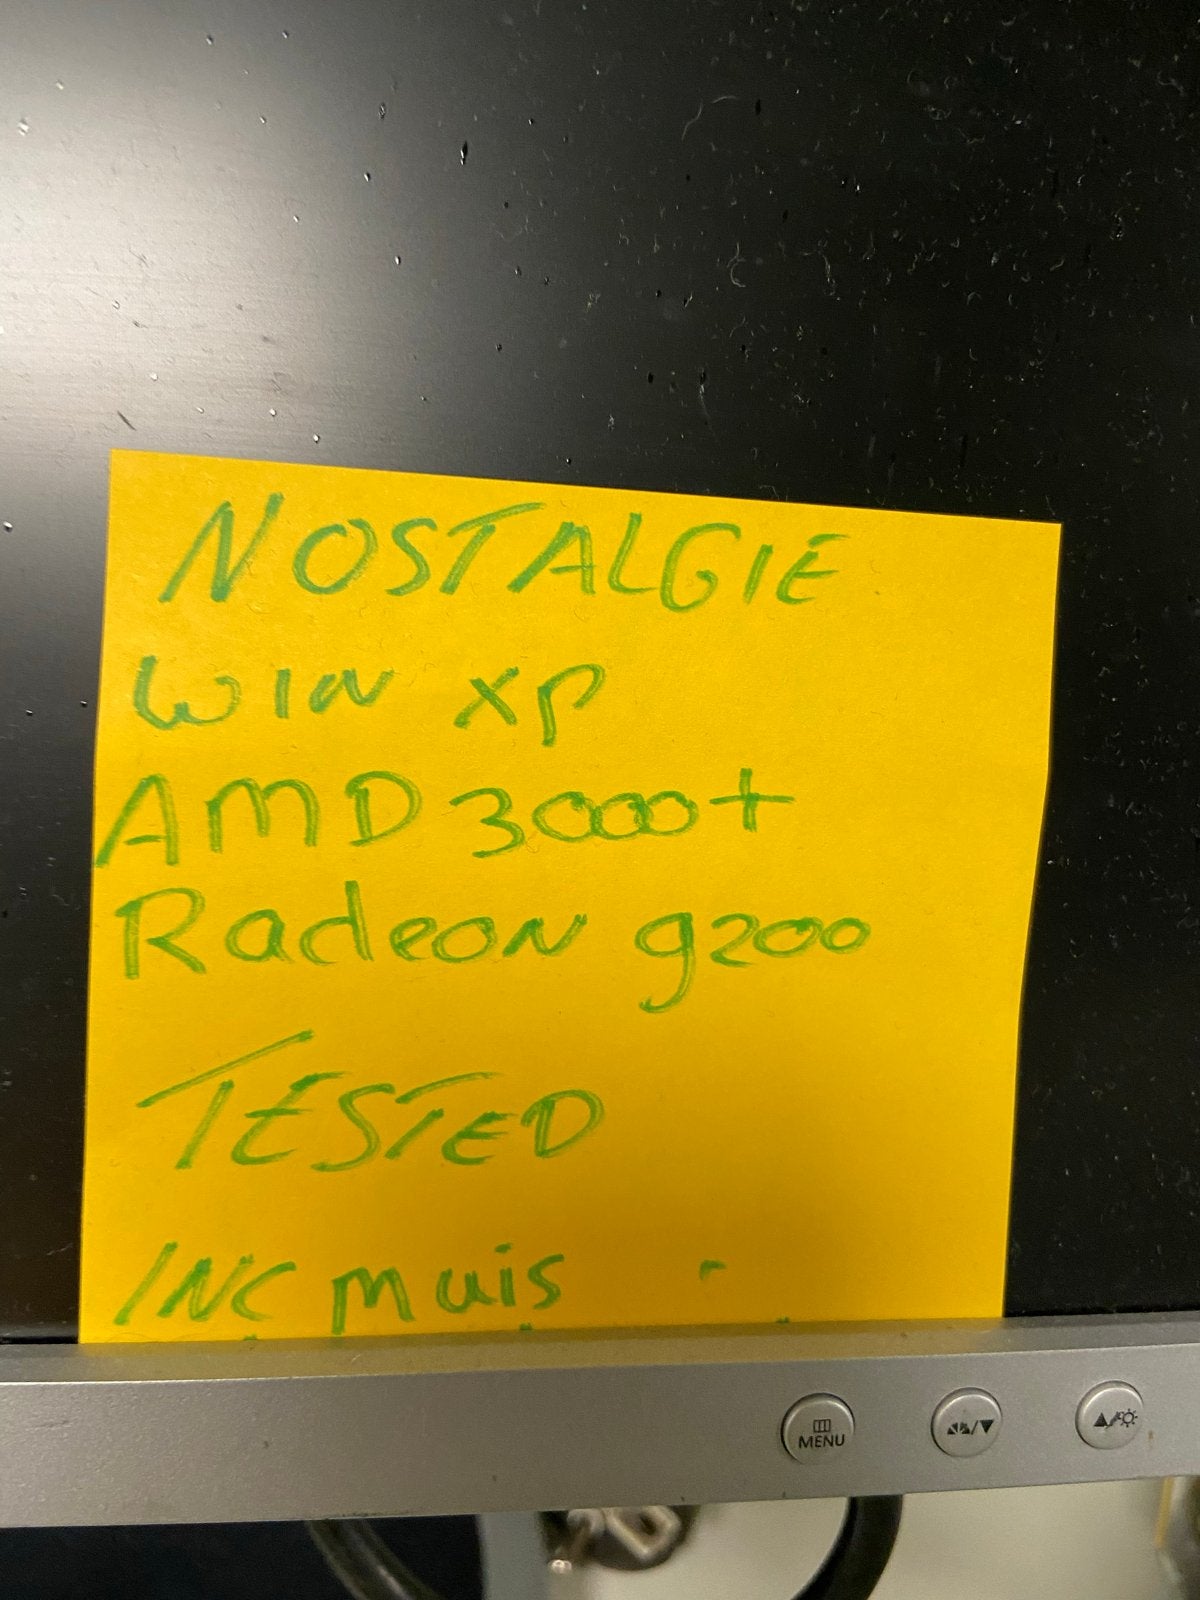 NOSTALGIE
WIN XP
AMD 3000+
Radeon 9200
TESTED
INC muis
MENU